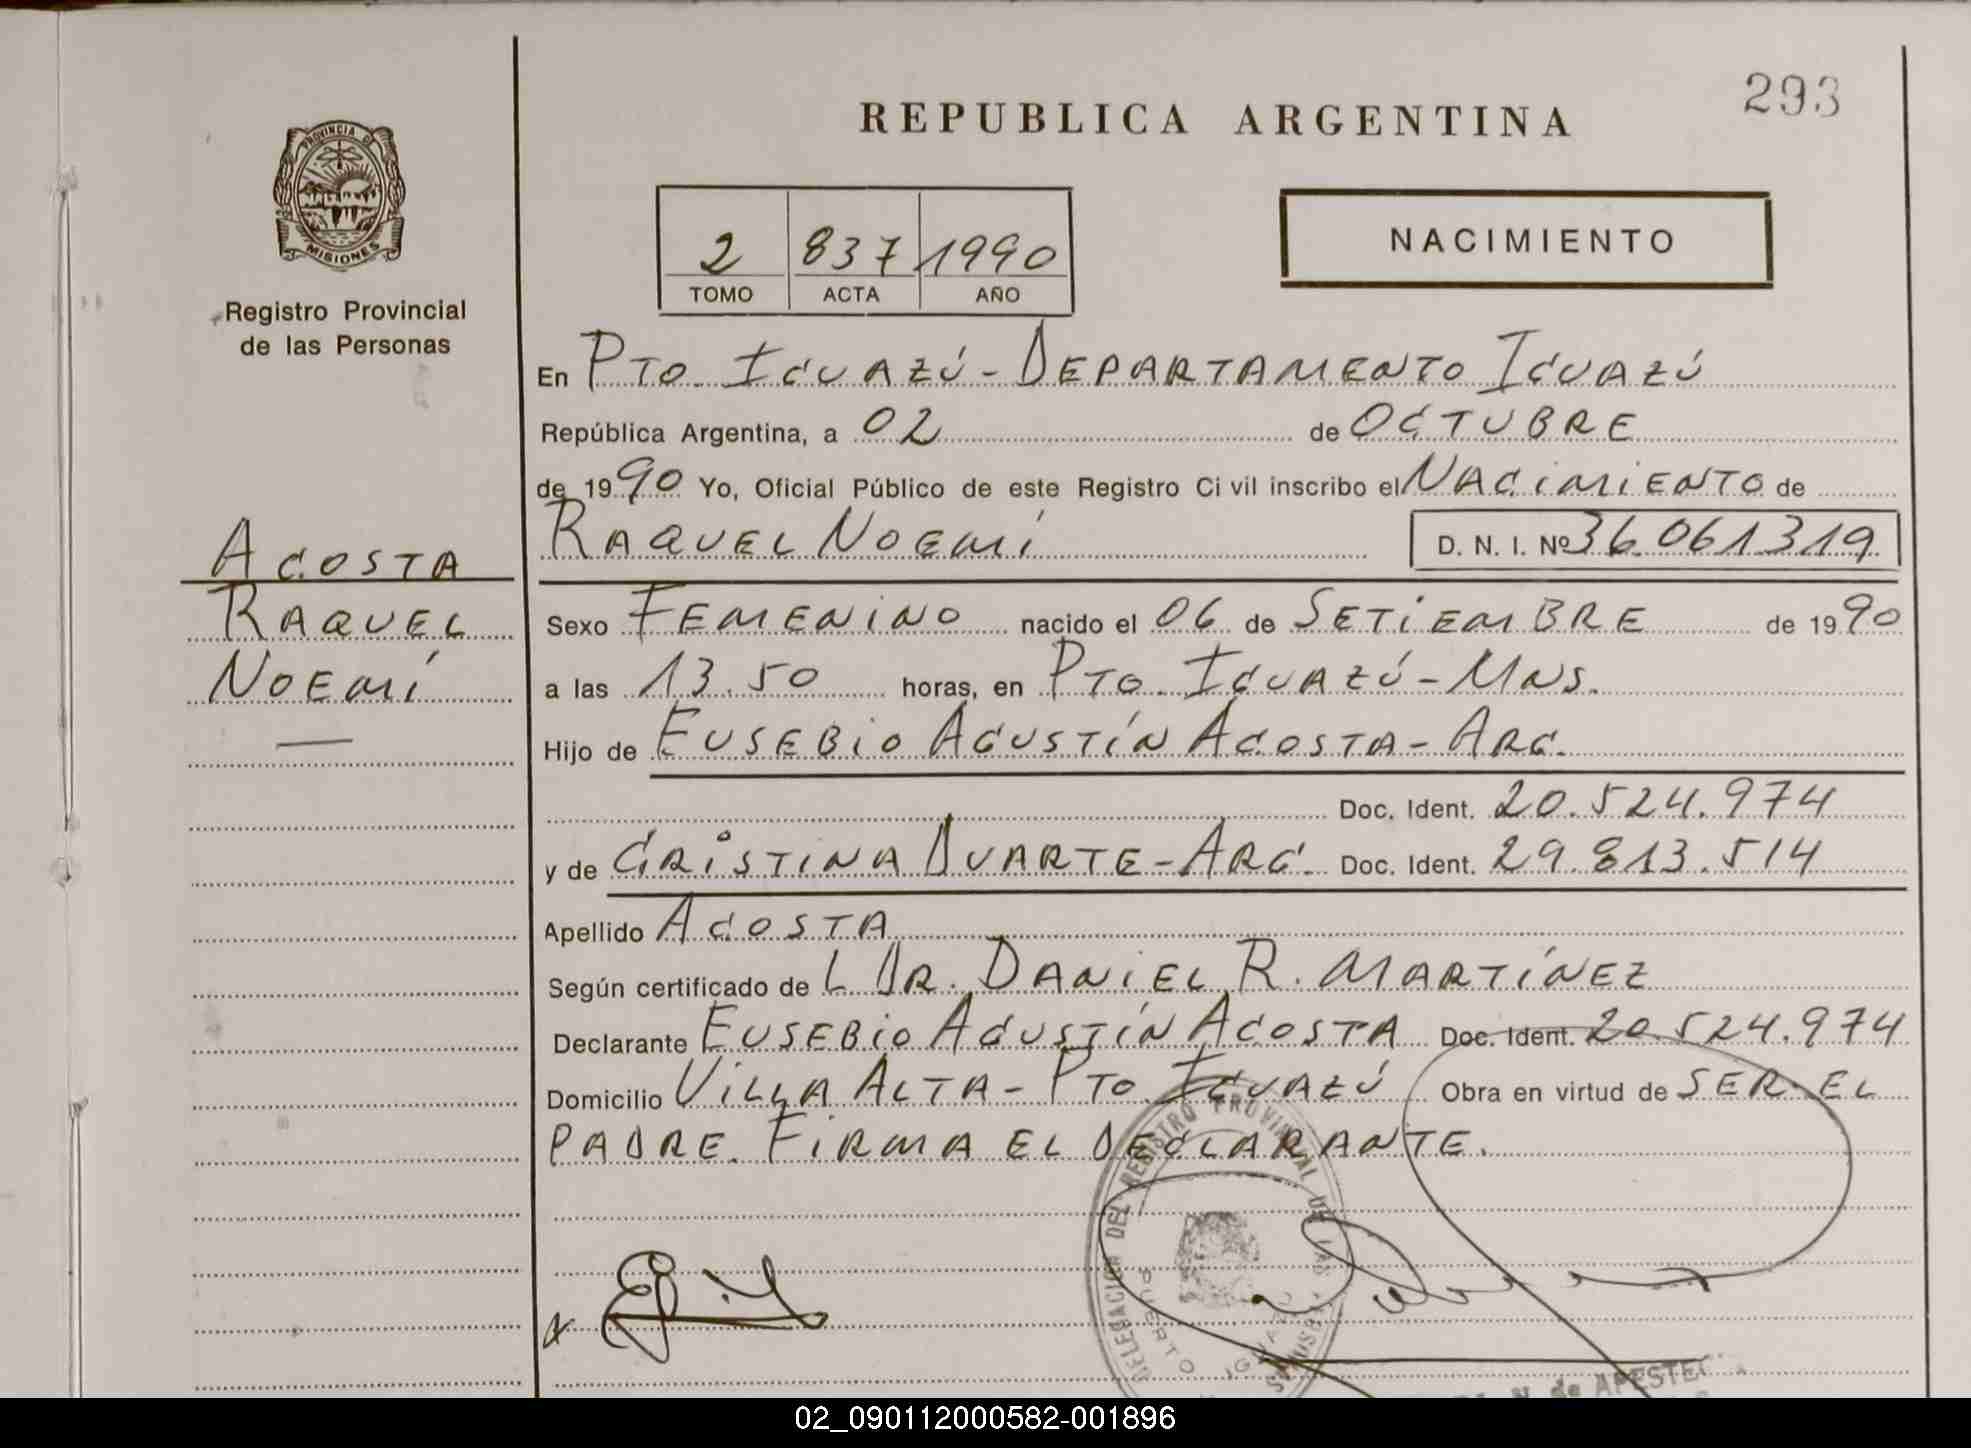 293
REPUBLICA ARGENTINA
PROVINCIA DE
MISIONES
Registro Provincial
de las Personas
2 837 1990
TOMO ACTA AÑO
NACIMIENTO
En PTO. IGUAZÚ - DEPARTAMENTO IGUAZÚ
República Argentina, a 02 de OCTUBRE
de 1990 Yo, Oficial Público de este Registro Ci vil inscribo el NACIMIENTO de
RAQUEL NOEMÍ D. N. I. Nº 36.061319
ACOSTA
RAQUEL
NOEMÍ
Sexo FEMENINO nacido el 06 de SETIEMBRE de 1990
a las 13.50 horas, en PTO. IGUAZÚ - MNS.
Hijo de EUSEBIO AGUSTÍN ACOSTA - ARG.
Doc. Ident. 20.524.974
y de CRISTINA DUARTE - ARG. Doc. Ident. 29.813.514
Apellido ACOSTA
Según certificado de L DR. DANIEL R. MARTÍNEZ
Declarante EUSEBIO AGUSTÍN ACOSTA Doc. Ident. 20.524.974
Domicilio VILLA ALTA - PTO. IGUAZÚ Obra en virtud de SER EL
PADRE. FIRMA EL DECLARANTE.
DELEGACION DEL REGISTRO PROVINCIAL DE LAS
PUERTO IGUAZU
N. de APESTEG
02_090112000582-001896